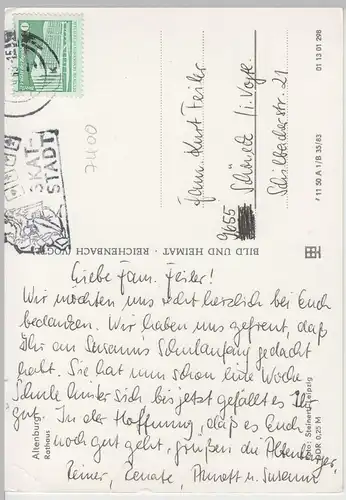 Liebe Fam. Feiler!
Wir möchten uns recht herzlich bei Euch
bedanken. Wir haben uns gefreut, daß
Ihr an Susanns Schulanfang gedacht
habt. Sie hat nun schon eine Woche
Schule hinter sich bis jetzt gefällt es Ihr
gut. In der Hoffnung, daß es Euch
noch gut geht, grüßen die Altenburger,
Reiner, Renate, Annett u. Susann
Fam. Kurt Feiler
9655
Schöneck i. Vogtl.
Schilbacherstr. 21
7400
SKAT-
STADT
10
BILD UND HEIMAT · REICHENBACH (VOGTL
Altenburg
Rathaus
Foto: Steinert, Leipzig
DDR 0,25 M
F 11 50 A 1/B 35/83
01 13 01 298